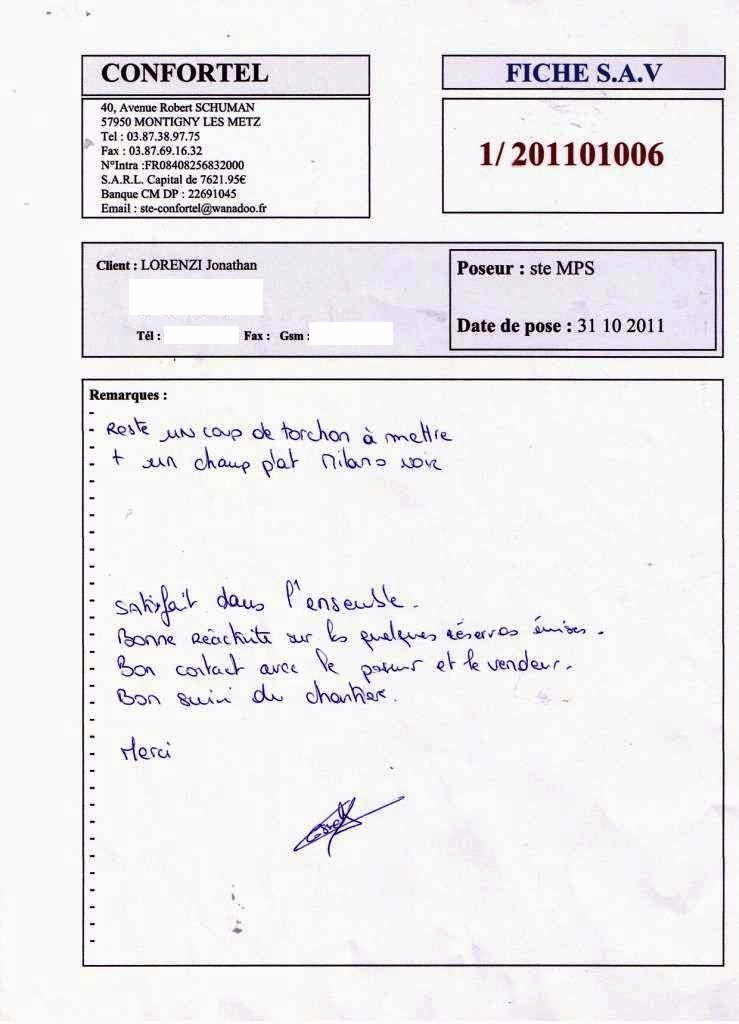 CONFORTEL
40, Avenue Robert SCHUMAN
57950 MONTIGNY LES METZ
Tel : 03.87.38.97.75
Fax : 03.87.69.16.32
N°Intra :FR08408256832000
S.A.R.L. Capital de 7621.95€
Banque CM DP : 22691045
Email : ste-confortel@wanadoo.fr
FICHE S.A.V
1/ 201101006
Client : LORENZI Jonathan
Tél : Fax : Gsm :
Poseur : ste MPS
Date de pose : 31 10 2011
Remarques :
- Reste un coup de torchon à mettre
- + un champ plat Milano noir
satisfait dans l'ensemble.
Bonne réactivité sur les quelques réserves émises.
Bon contact avec le poseur et le vendeur.
Bon suivi du chantier.
Merci